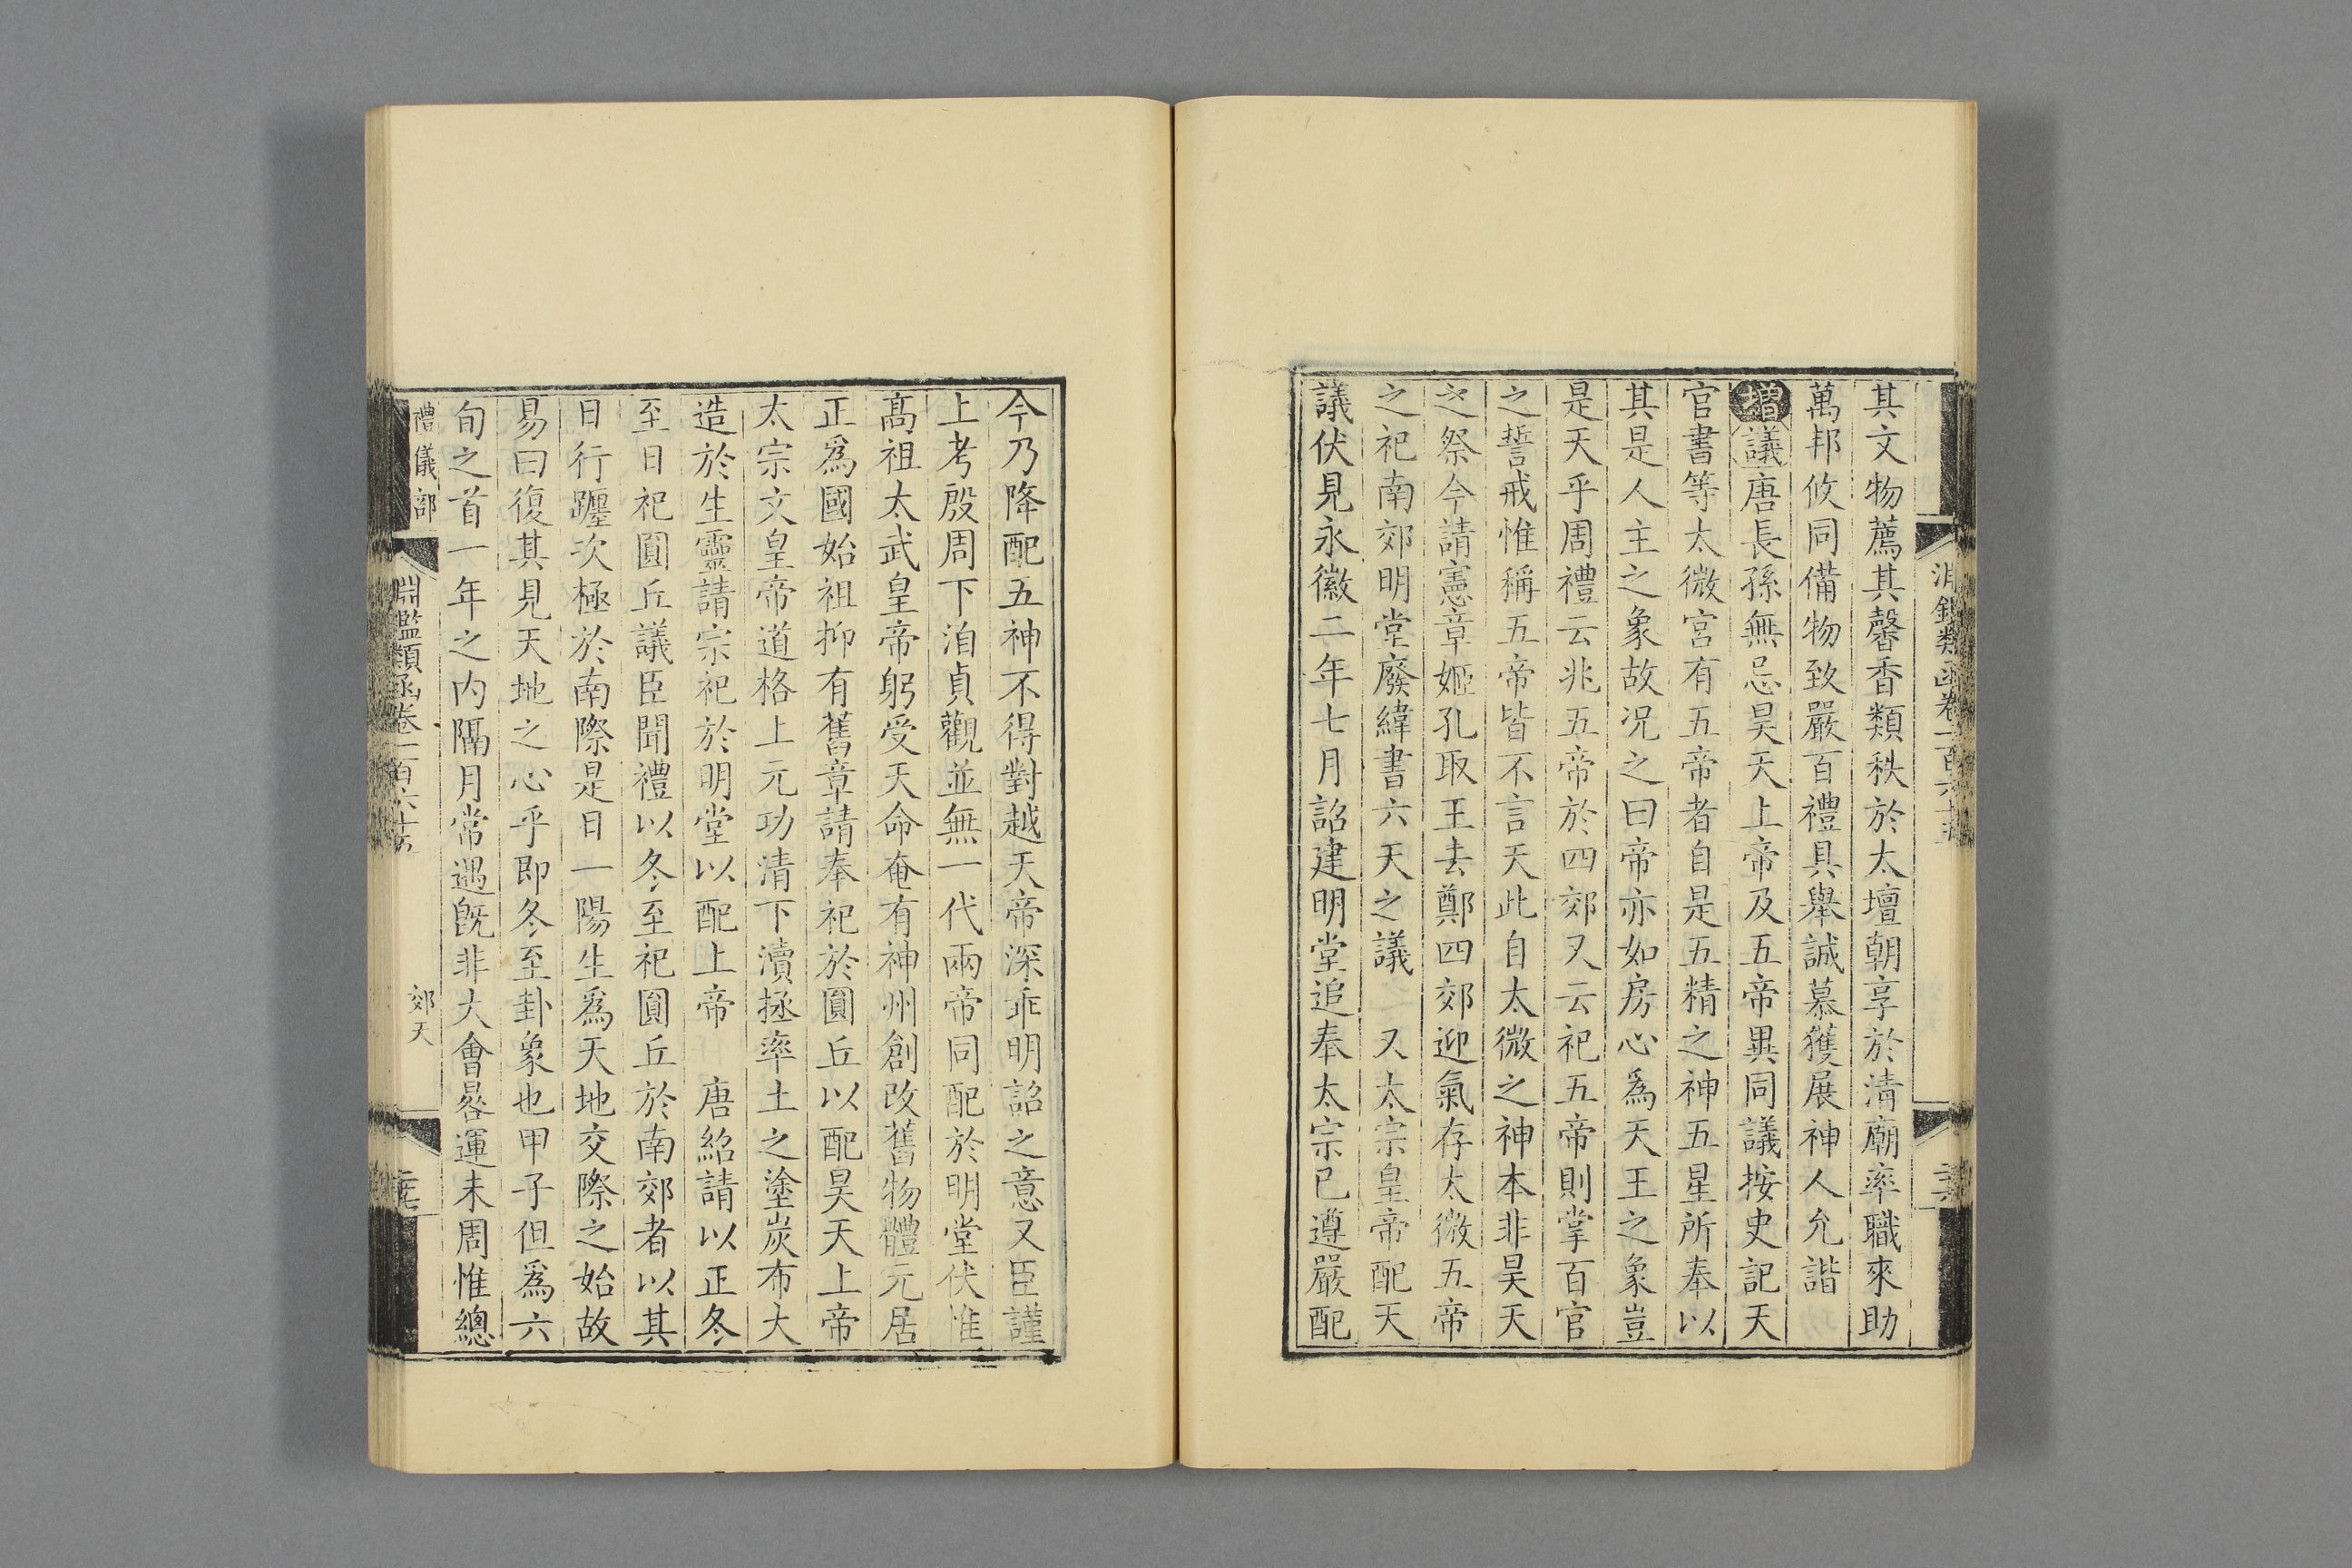 其文物薦其馨香類秩於太壇朝享於清廟率職來助
萬邦攸同備物致嚴百禮具舉誠慕獲展神人允諧
增議唐長孫無忌昊天上帝及五帝異同議按史記天
官書等太微宮有五帝者自是五精之神五星所奉以
其是人主之象故况之曰帝亦如房心爲天王之象豈
是天乎周禮云兆五帝於四郊又云祀五帝則掌百官
之誓戒惟稱五帝皆不言天此自太微之神本非昊天
之祭今請憲章姬孔取王去鄭四郊迎氣存太微五帝
之祀南郊明堂廢緯書六天之議 又太宗皇帝配天
議伏見永徽二年七月詔建明堂追奉太宗已遵嚴配
今乃降配五神不得對越天帝深乖明詔之意又臣謹
上考殷周下洎貞觀並無一代兩帝同配於明堂伏惟
高祖太武皇帝躬受天命奄有神州創改舊物體元居
正爲國始祖抑有舊章請奉祀於圓丘以配昊天上帝
太宗文皇帝道格上元功清下瀆拯率土之塗炭布大
造於生靈請宗祀於明堂以配上帝 唐紹請以正冬
至日祀圓丘議臣聞禮以冬至祀圓丘於南郊者以其
日行躔次極於南際是日一陽生爲天地交際之始故
易曰復其見天地之心乎即冬至卦象也甲子但爲六
旬之首一年之内隔月常遇既非大會晷運未周惟總
禮儀部 淵鑑類函卷一百六十 郊天